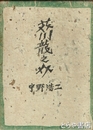 芥川龍之介
宇野浩二